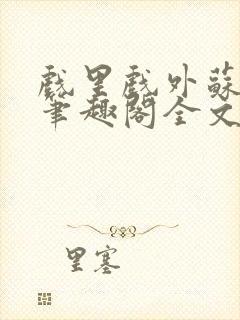 戲里戲外蘇
筆趣閣全文
里塞